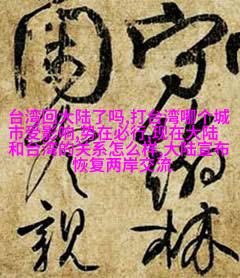 台湾回大陆了吗,打台湾哪个城
市受影响,势在必行,现在大陆
和台湾的关系怎么样,大陆宣布
恢复两岸交流
守林
親